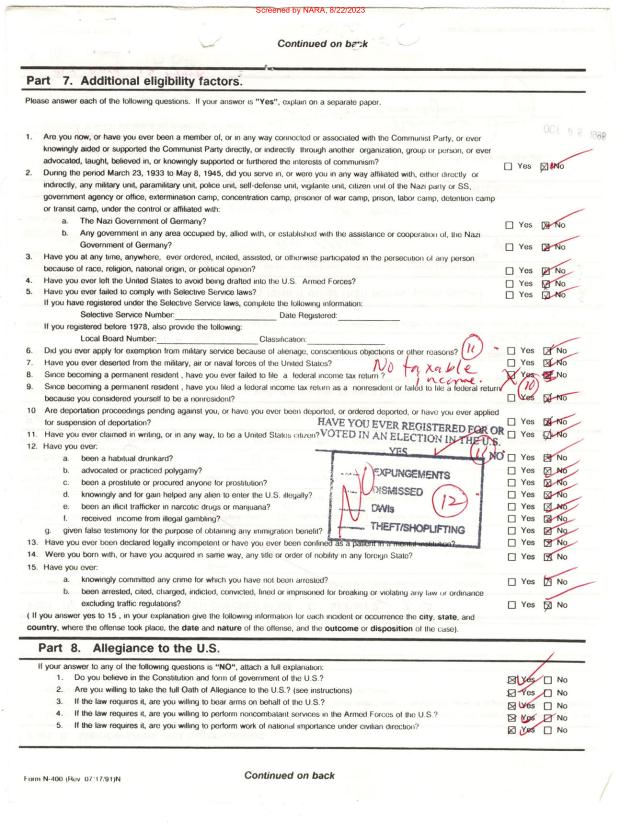 Screened by NARA, 8/22/2023
Continued on back
Part 7. Additional eligibility factors.
Please answer each of the following questions. If your answer is "Yes", explain on a separate paper.
1. Are you now, or have you ever been a member of, or in any way connected or associated with the Communist Party, or ever
knowingly aided or supported the Communist Party directly, or indirectly through another organization, group or person, or ever
advocated, taught, believed in, or knowingly supported or furthered the interests of communism? Yes No
2. During the period March 23, 1933 to May 8, 1945, did you serve in, or were you in any way affiliated with, either directly or
indirectly, any military unit, paramilitary unit, police unit, self-defense unit, vigilante unit, citizen unit of the Nazi party or SS,
government agency or office, extermination camp, concentration camp, prisoner of war camp, prison, labor camp, detention camp
or transit camp, under the control or affiliated with:
a. The Nazi Government of Germany? Yes No
b. Any government in any area occupied by, allied with, or established with the assistance or cooperation of, the Nazi
Government of Germany? Yes No
3. Have you at any time, anywhere, ever ordered, incited, assisted, or otherwise participated in the persecution of any person
because of race, religion, national origin, or political opinion? Yes No
4. Have you ever left the United States to avoid being drafted into the U.S. Armed Forces? Yes No
5. Have you ever failed to comply with Selective Service laws? Yes No
If you have registered under the Selective Service laws, complete the following information:
Selective Service Number: Date Registered:
If you registered before 1978, also provide the following:
Local Board Number: Classification:
6. Did you ever apply for exemption from military service because of alienage, conscientious objections or other reasons? 11 Yes No
7. Have you ever deserted from the military, air or naval forces of the United States? Yes No
No taxable
income.
8. Since becoming a permanent resident , have you ever failed to file a federal income tax return ? Yes No
9. Since becoming a permanent resident , have you filed a federal income tax return as a nonresident or failed to file a federal return
because you considered yourself to be a nonresident? 10 Yes No
10 Are deportation proceedings pending against you, or have you ever been deported, or ordered deported, or have you ever applied
for suspension of deportation? Yes No
HAVE YOU EVER REGISTERED FOR OR
11. Have you ever claimed in writing, or in any way, to be a United States citizen? Yes No
VOTED IN AN ELECTION IN THE U.S.
YES NO
11
12. Have you ever:
a. been a habitual drunkard? Yes No
b. advocated or practiced polygamy? Yes No
c. been a prostitute or procured anyone for prostitution? Yes No
d. knowingly and for gain helped any alien to enter the U.S. illegally? Yes No
e. been an illicit trafficker in narcotic drugs or marijuana? Yes No
f. received income from illegal gambling? Yes No
g. given false testimony for the purpose of obtaining any immigration benefit? Yes No
EXPUNGEMENTS
DISMISSED
DWIs
THEFT/SHOPLIFTING
12
13. Have you ever been declared legally incompetent or have you ever been confined as a patient in a mental institution? Yes No
14. Were you born with, or have you acquired in same way, any title or order of nobility in any foreign State? Yes No
15. Have you ever:
a. knowingly committed any crime for which you have not been arrested? Yes No
b. been arrested, cited, charged, indicted, convicted, fined or imprisoned for breaking or violating any law or ordinance
excluding traffic regulations? Yes No
( If you answer yes to 15 , in your explanation give the following information for each incident or occurrence the city, state, and
country, where the offense took place, the date and nature of the offense, and the outcome or disposition of the case).
Part 8. Allegiance to the U.S.
If your answer to any of the following questions is "NO", attach a full explanation:
1. Do you believe in the Constitution and form of government of the U.S.? Yes No
2. Are you willing to take the full Oath of Allegiance to the U.S.? (see instructions) Yes No
3. If the law requires it, are you willing to bear arms on behalf of the U.S.? Yes No
4. If the law requires it, are you willing to perform noncombatant services in the Armed Forces of the U.S.? Yes No
5. If the law requires it, are you willing to perform work of national importance under civilian direction? Yes No
Form N-400 (Rev. 07/17/91)N
Continued on back